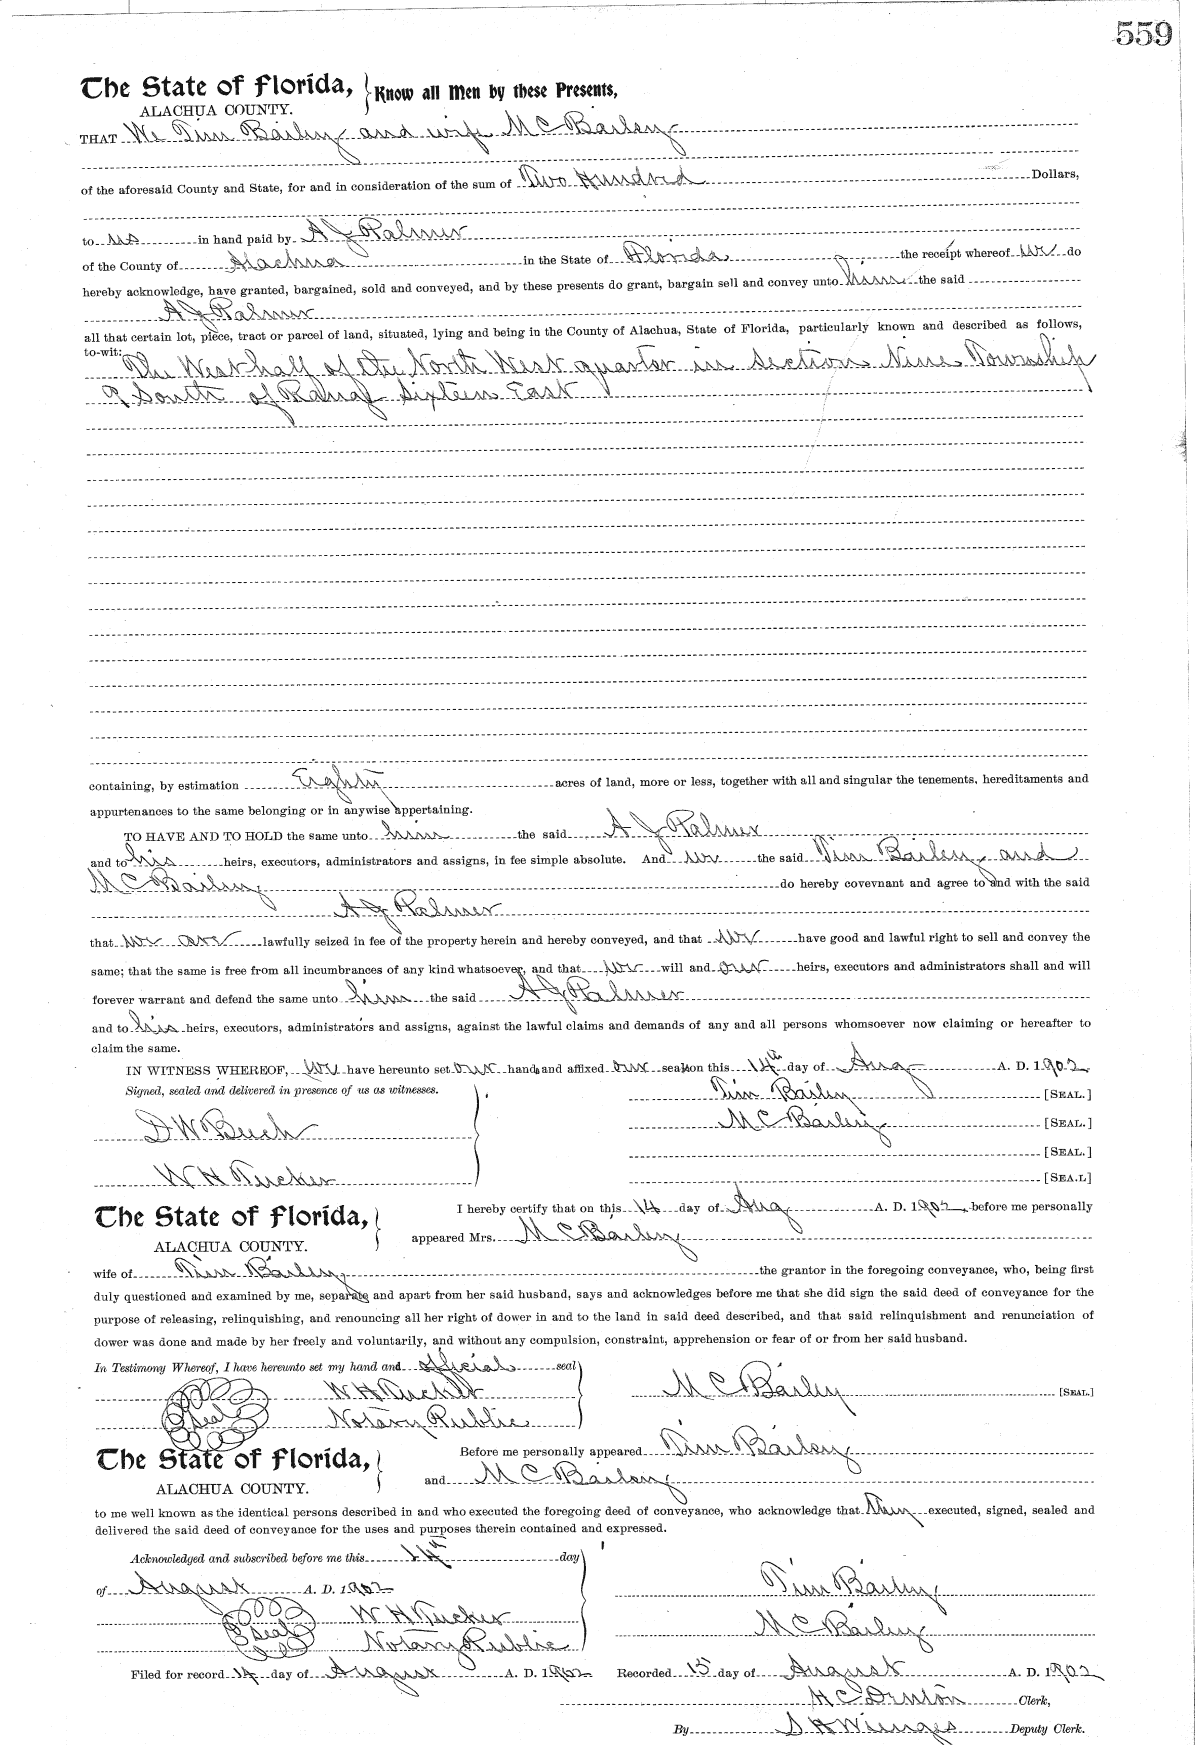 559
The State of Florida, Know all Men by these Presents,
ALACHUA COUNTY.
THAT We Tim Bailey and wife M C Bailey
of the aforesaid County and State, for and in consideration of the sum of Two Hundred Dollars,
to us in hand paid by A J Palmer
of the County of Alachua in the State of Florida the receipt whereof we do
hereby acknowledge, have granted, bargained, sold and conveyed, and by these presents do grant, bargain sell and convey unto him the said
A J Palmer
all that certain lot, piece, tract or parcel of land, situated, lying and being in the County of Alachua, State of Florida, particularly known and described as follows,
to-wit: The West half of the North West quarter in section Nine Township
9 South of Range Sixteen East
containing, by estimation Eighty acres of land, more or less, together with all and singular the tenements, hereditaments and
appurtenances to the same belonging or in anywise appertaining.
TO HAVE AND TO HOLD the same unto him the said A J Palmer
and to his heirs, executors, administrators and assigns, in fee simple absolute. And we the said Tim Bailey and
M C Bailey do hereby covevnant and agree to and with the said
A J Palmer
that we are lawfully seized in fee of the property herein and hereby conveyed, and that we have good and lawful right to sell and convey the
same; that the same is free from all incumbrances of any kind whatsoever, and that we will and our heirs, executors and administrators shall and will
forever warrant and defend the same unto him the said A J Palmer
and to his heirs, executors, administrators and assigns, against the lawful claims and demands of any and all persons whomsoever now claiming or hereafter to
claim the same.
IN WITNESS WHEREOF, we have hereunto set our hands and affixed our seals on this 14th day of Aug A. D. 1902
Signed, sealed and delivered in presence of us as witnesses.
Tim Bailey [SEAL.]
D W Buch M C Bailey [SEAL.]
[SEAL.]
W H Tucker [SEA.L]
The State of Florida, I hereby certify that on this 14 day of Aug A. D. 1902 before me personally
ALACHUA COUNTY. appeared Mrs. M C Bailey
wife of Tim Bailey the grantor in the foregoing conveyance, who, being first
duly questioned and examined by me, separate and apart from her said husband, says and acknowledges before me that she did sign the said deed of conveyance for the
purpose of releasing, relinquishing, and renouncing all her right of dower in and to the land in said deed described, and that said relinquishment and renunciation of
dower was done and made by her freely and voluntarily, and without any compulsion, constraint, apprehension or fear of or from her said husband.
In Testimony Whereof, I have hereunto set my hand and official seal
W H Tucker M C Bailey [SEAL.]
Seal Notary Public
The State of Florida, Before me personally appeared Tim Bailey
ALACHUA COUNTY. and M C Bailey
to me well known as the identical persons described in and who executed the foregoing deed of conveyance, who acknowledge that they executed, signed, sealed and
delivered the said deed of conveyance for the uses and purposes therein contained and expressed.
Acknowledged and subscribed before me this 14th day
of August A. D. 1902 Tim Bailey
Seal W H Tucker M C Bailey
Notary Public
Filed for record 14 day of August A. D. 1902 Recorded 15 day of August A. D. 1902
H C Denton Clerk,
By S H Wienges Deputy Clerk.